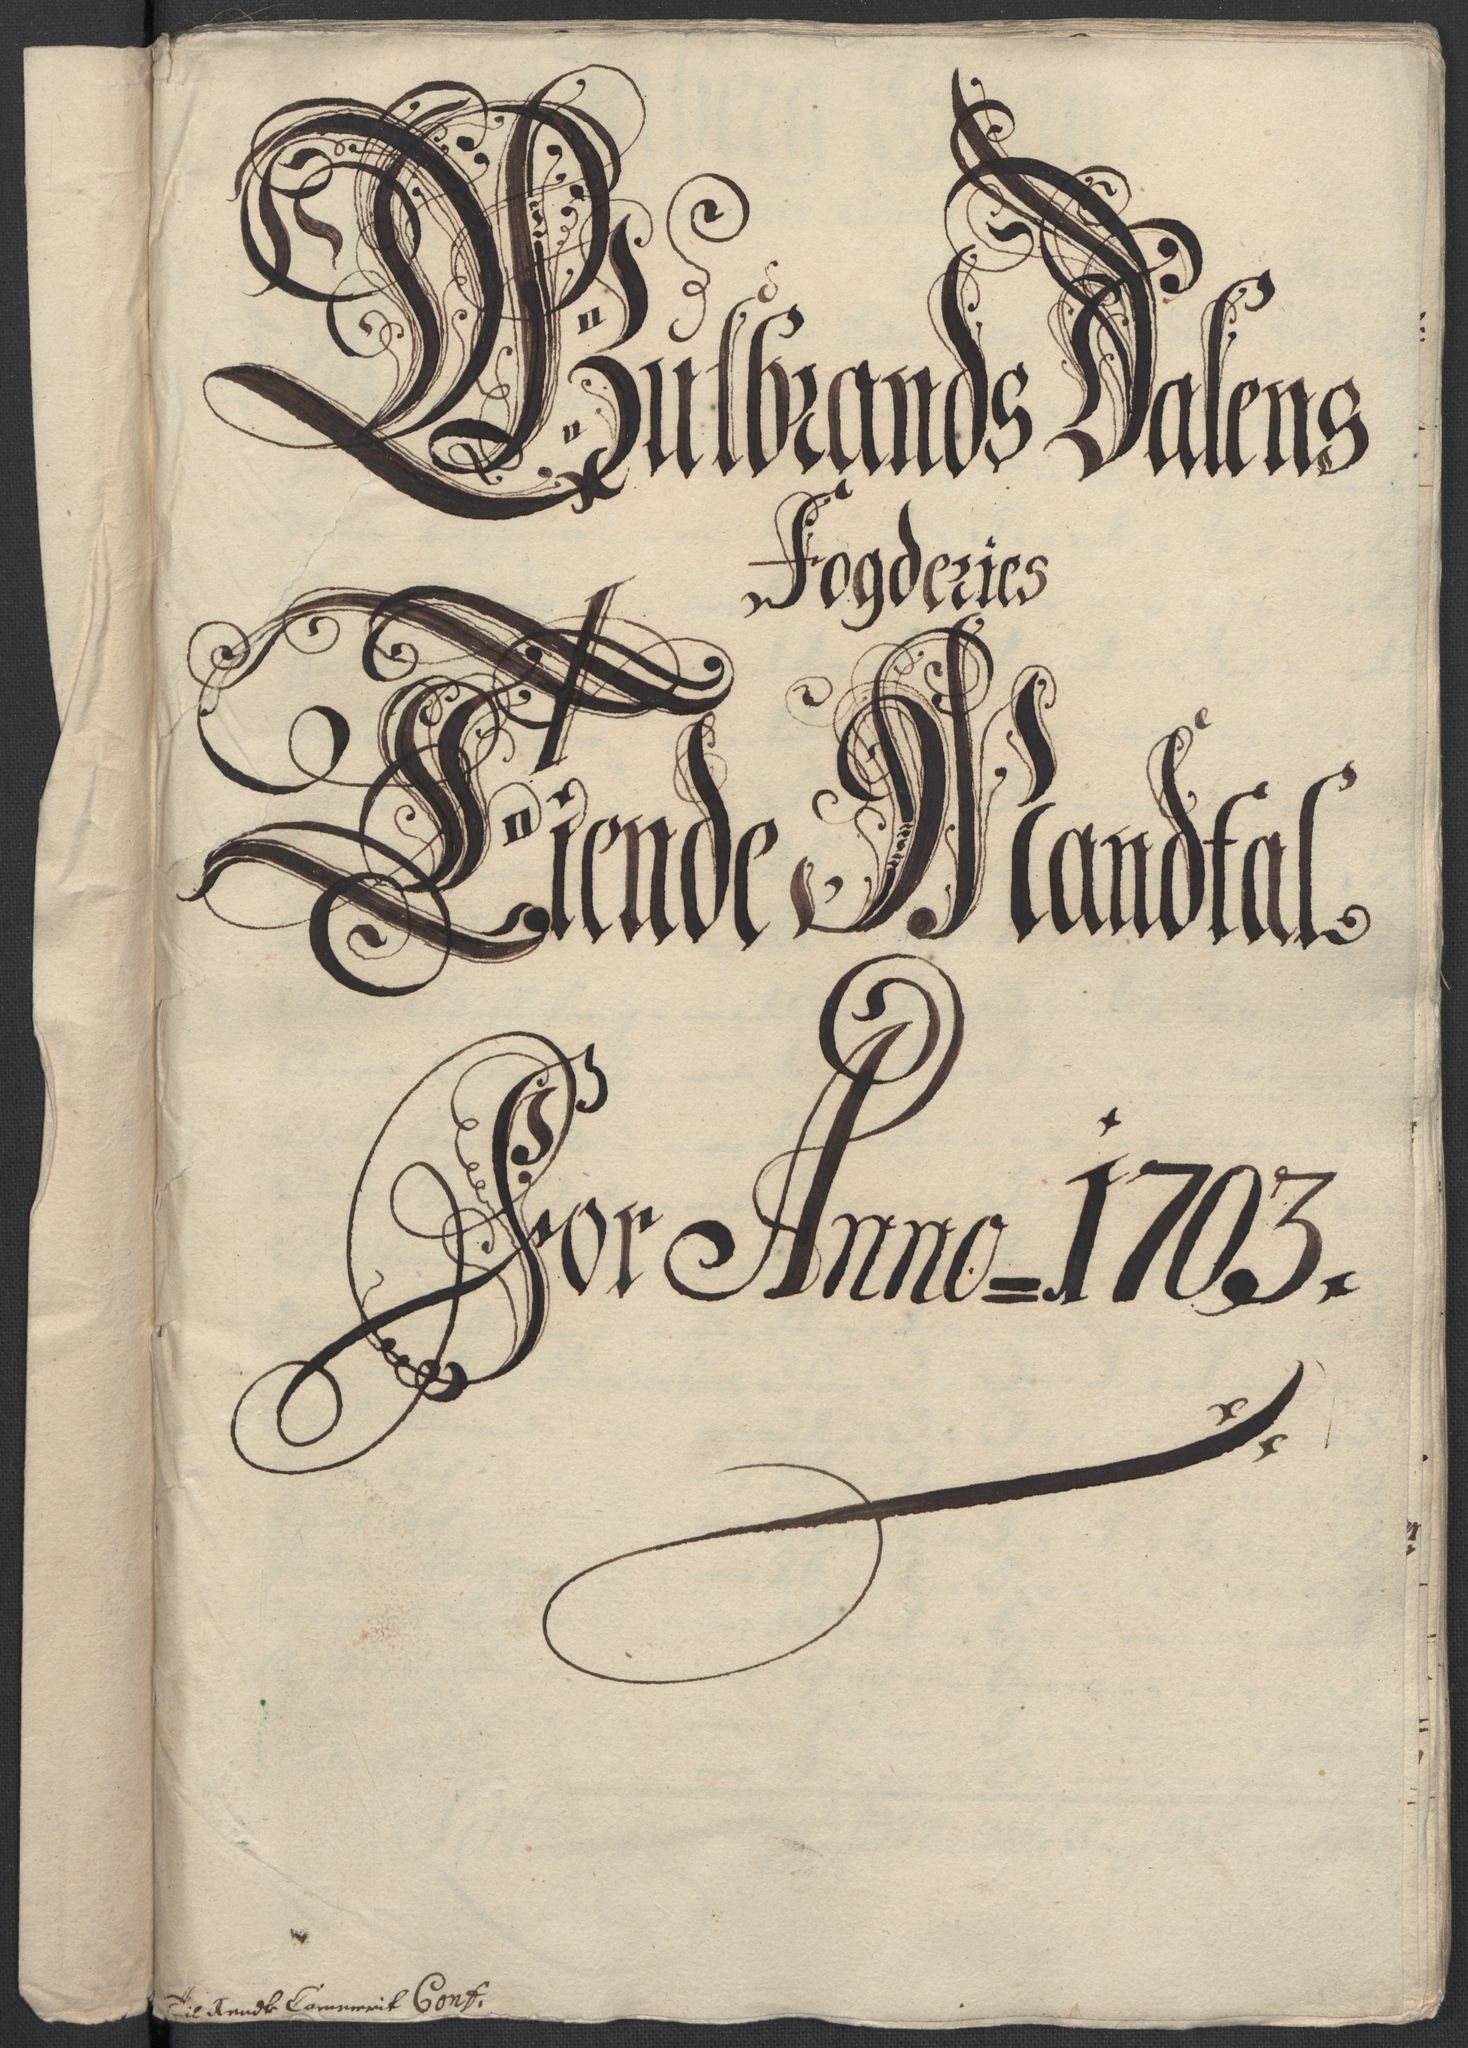 Gulbrands Dalens
Fogderies
Tiende Mandtal
For Anno 1703.
Til Rendte Cammerit Conf.